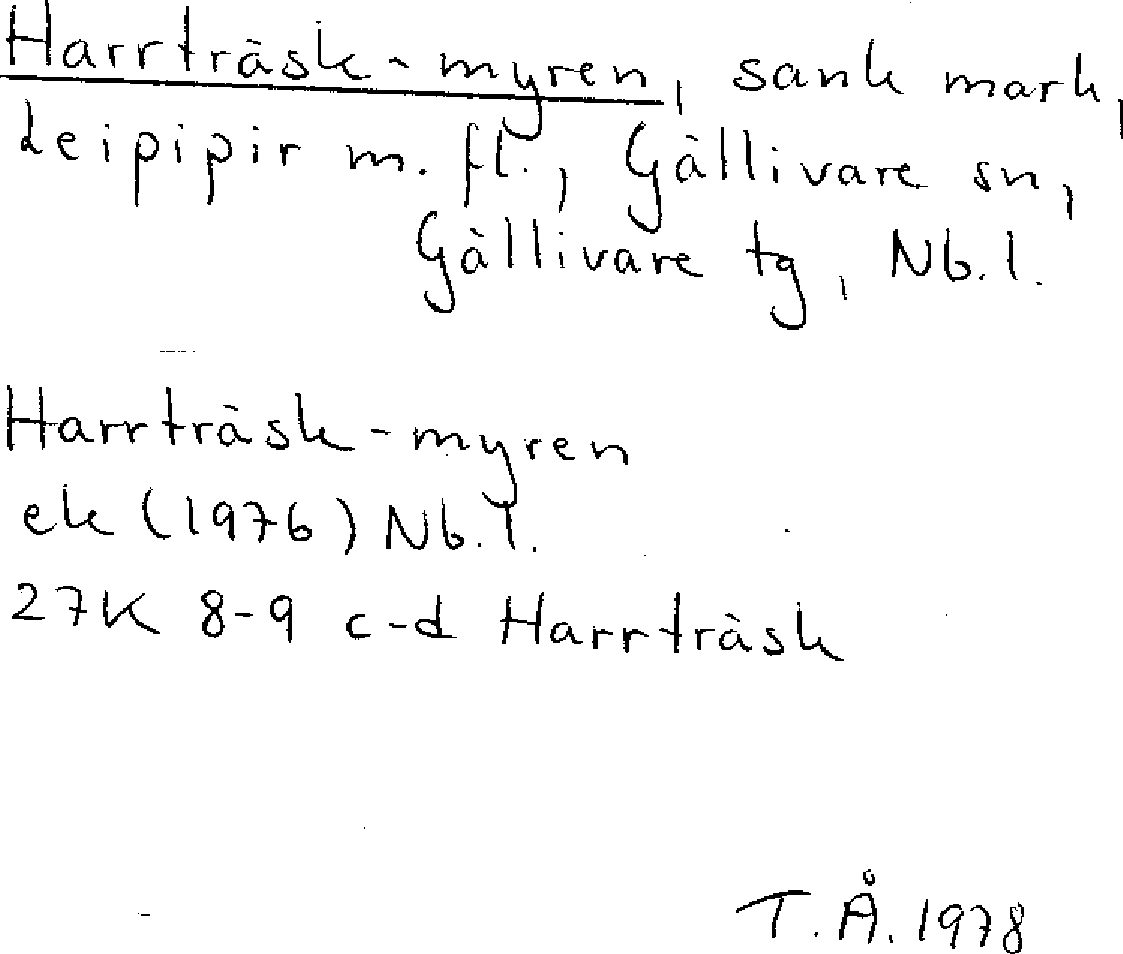 Harrträsk-myren, sank mark,
Leipipir m. fl., Gällivare sn,
Gällivare tg, Nb. l.
Harrträsk-myren
ek (1976) Nb. l.
27K 8-9 c-d Harrträsk
T. Å. 1978